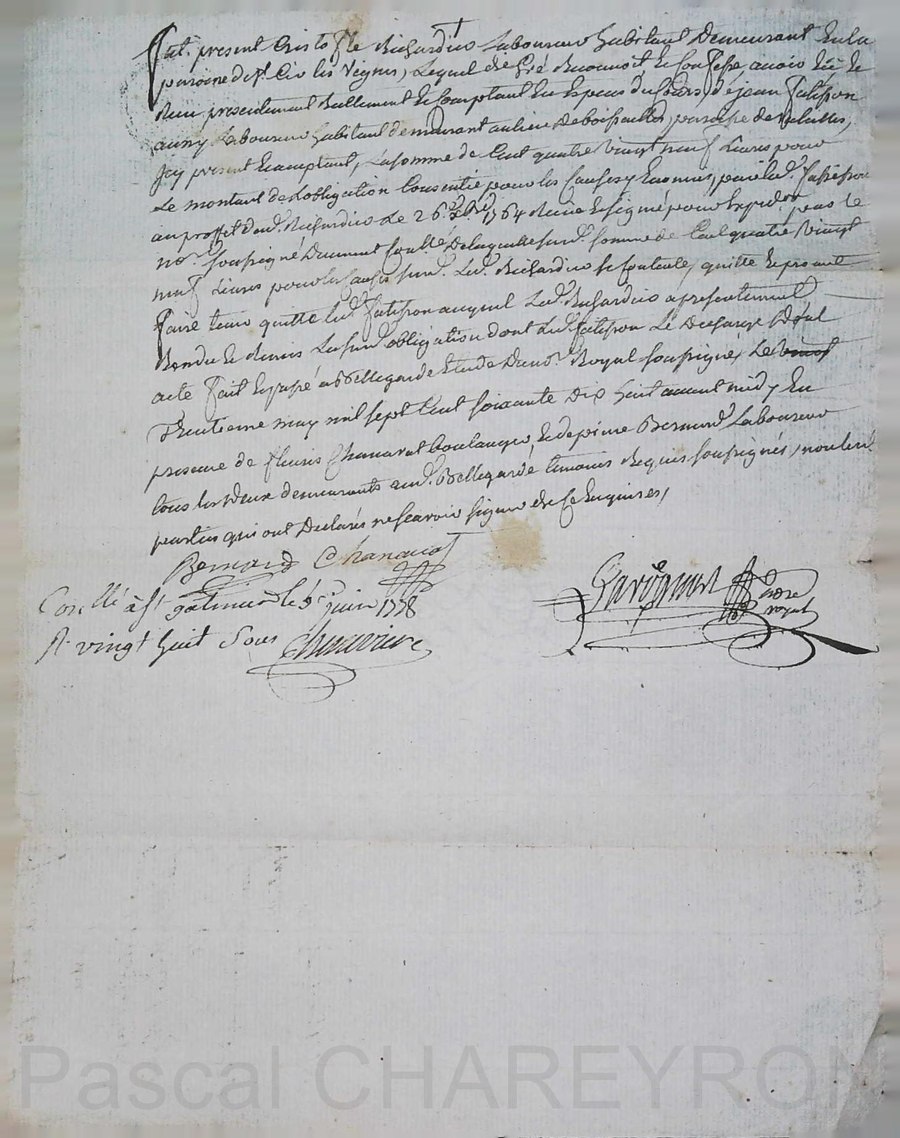 Fut present Cristofle Richardier Laboureur habitant Demeurant En la
paroisse de St Cir les Vignes, Lequel de Gré Reconnoit et Confesse, avoir
Reçu presentement Reellement et Comptant En Especes du Cours, de jean
aussy Laboureur habitant demeurant au lieu De paroisse de
jcy present Ecceptant, La somme de Cent quatre Vingt neuf Livres pour
Le montant de Lobligation Consentie pour les Causes y Enoncées par led.
au proffit dud. Richardier Le 26 1764 Reçue et signé pour Expedon par le
nore soussigné Duement Conllé De laquelle susd. somme de Cent quatre Vingt
neuf Livres pour les Causes susd. Led. Richardier se Contente, quitte et promet
faire tenir quitte led. auquel Led. Richardier a presentement
Rendu et Remis La susd. obligation dont Led. Le Decharge Dont
acte fait et passé a Bellegarde Etude Du nore Royal soussigné, Le vingt
Trente une may mil sept Cent soixante dix huit avant midy En
presence de fleuris Chanavat boulanger, et de pierre Bernard Laboureur
tous les Deux demeurants aud. Bellegarde temoins Requis soussignés, non les
parties qui ont Declarés ne scavoir signer de Ce Enquises,
Bernard Chanavat
Con llé à St galmier le 9 juin 1778
R. vingt huit Sous
nore
royal
Pascal CHAREYRON